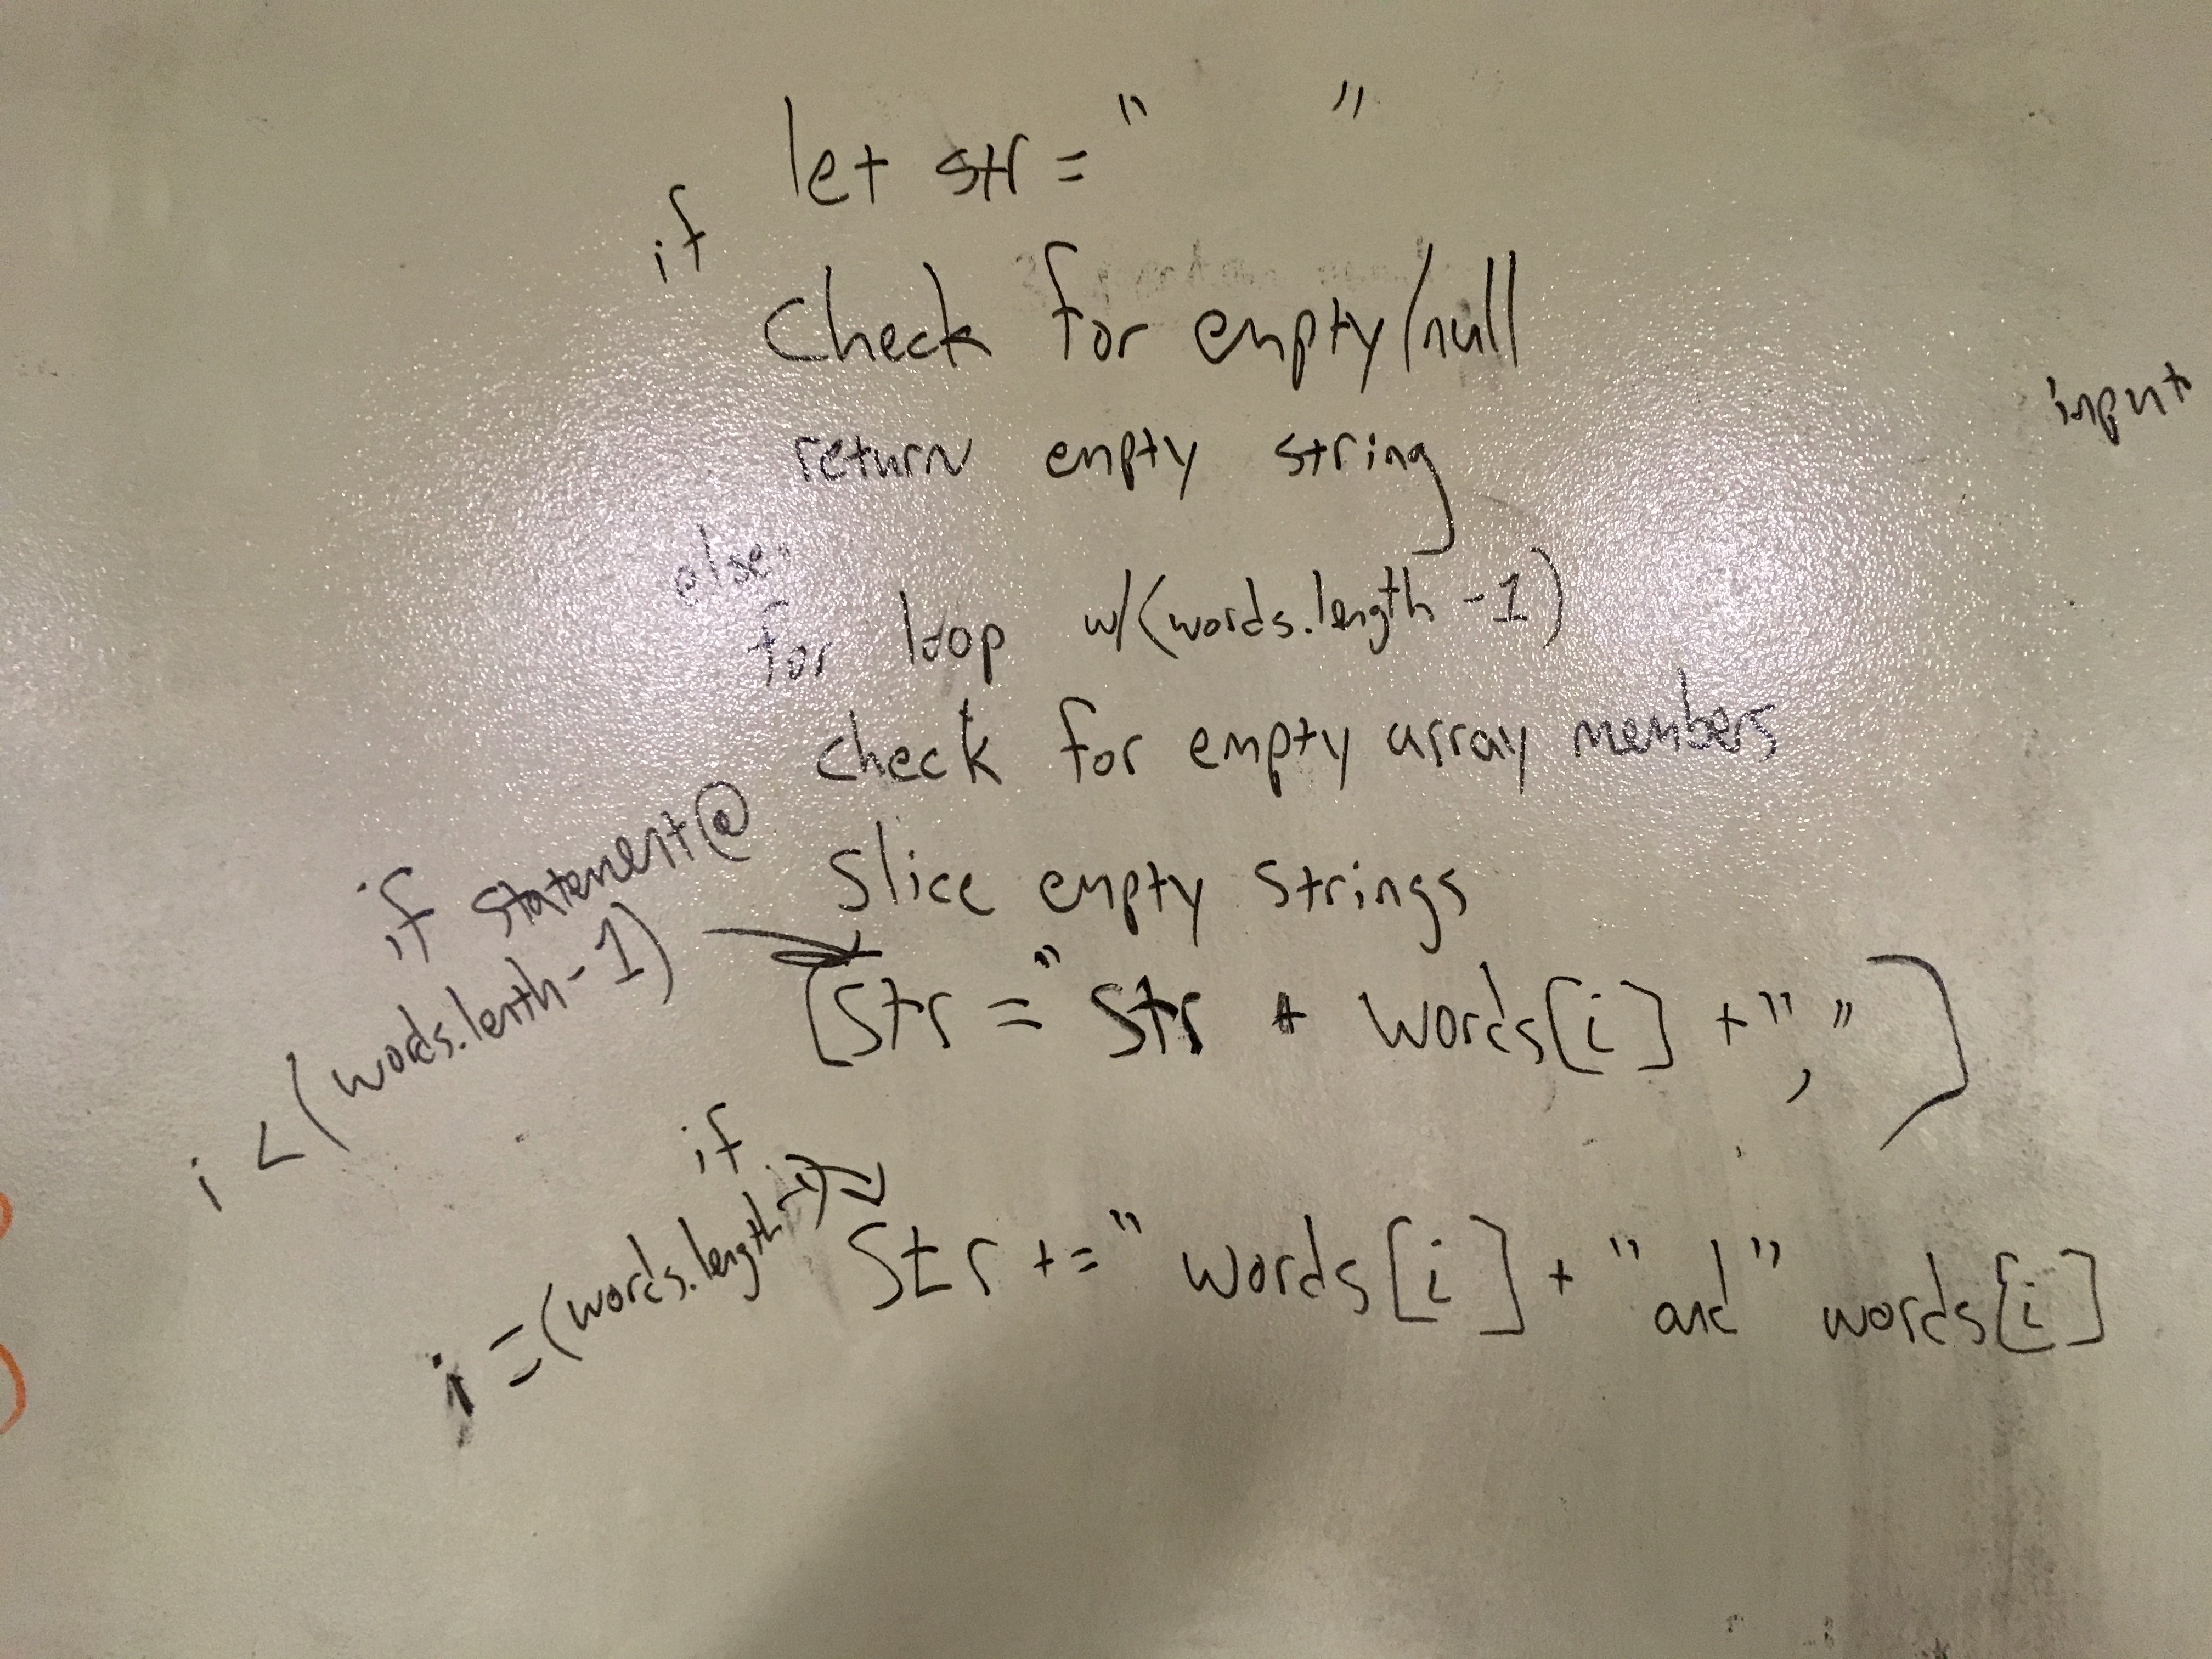 let str = "        "
if
Check for empty/null
return empty string
input
else
for loop w/(words.length -1)
check for empty array members
Slice empty strings
if statement @
i < (words.lenth - 1)
(Str = " Str + words[i] + ", ")
if
i = (words.length -1)
Str += " words[i] + "and" words[i]